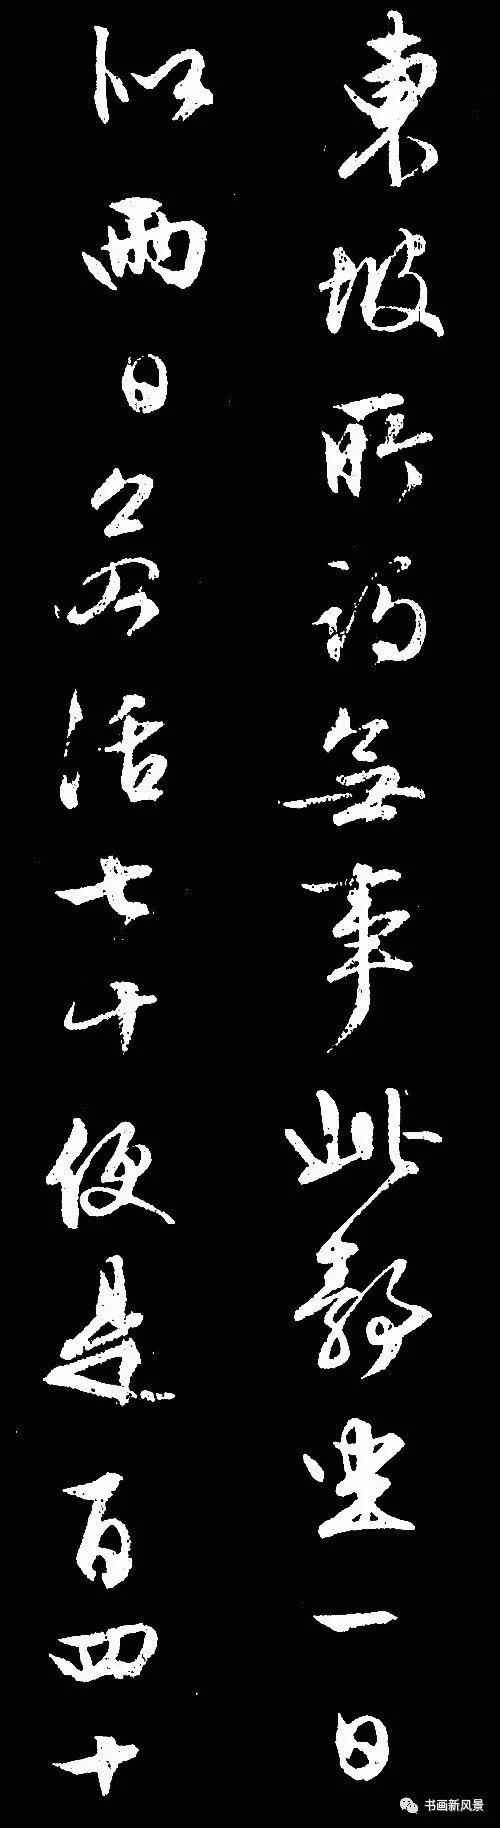 東坡所謂無事此靜坐一日
似兩日若活七十便是百四十
书画新风景